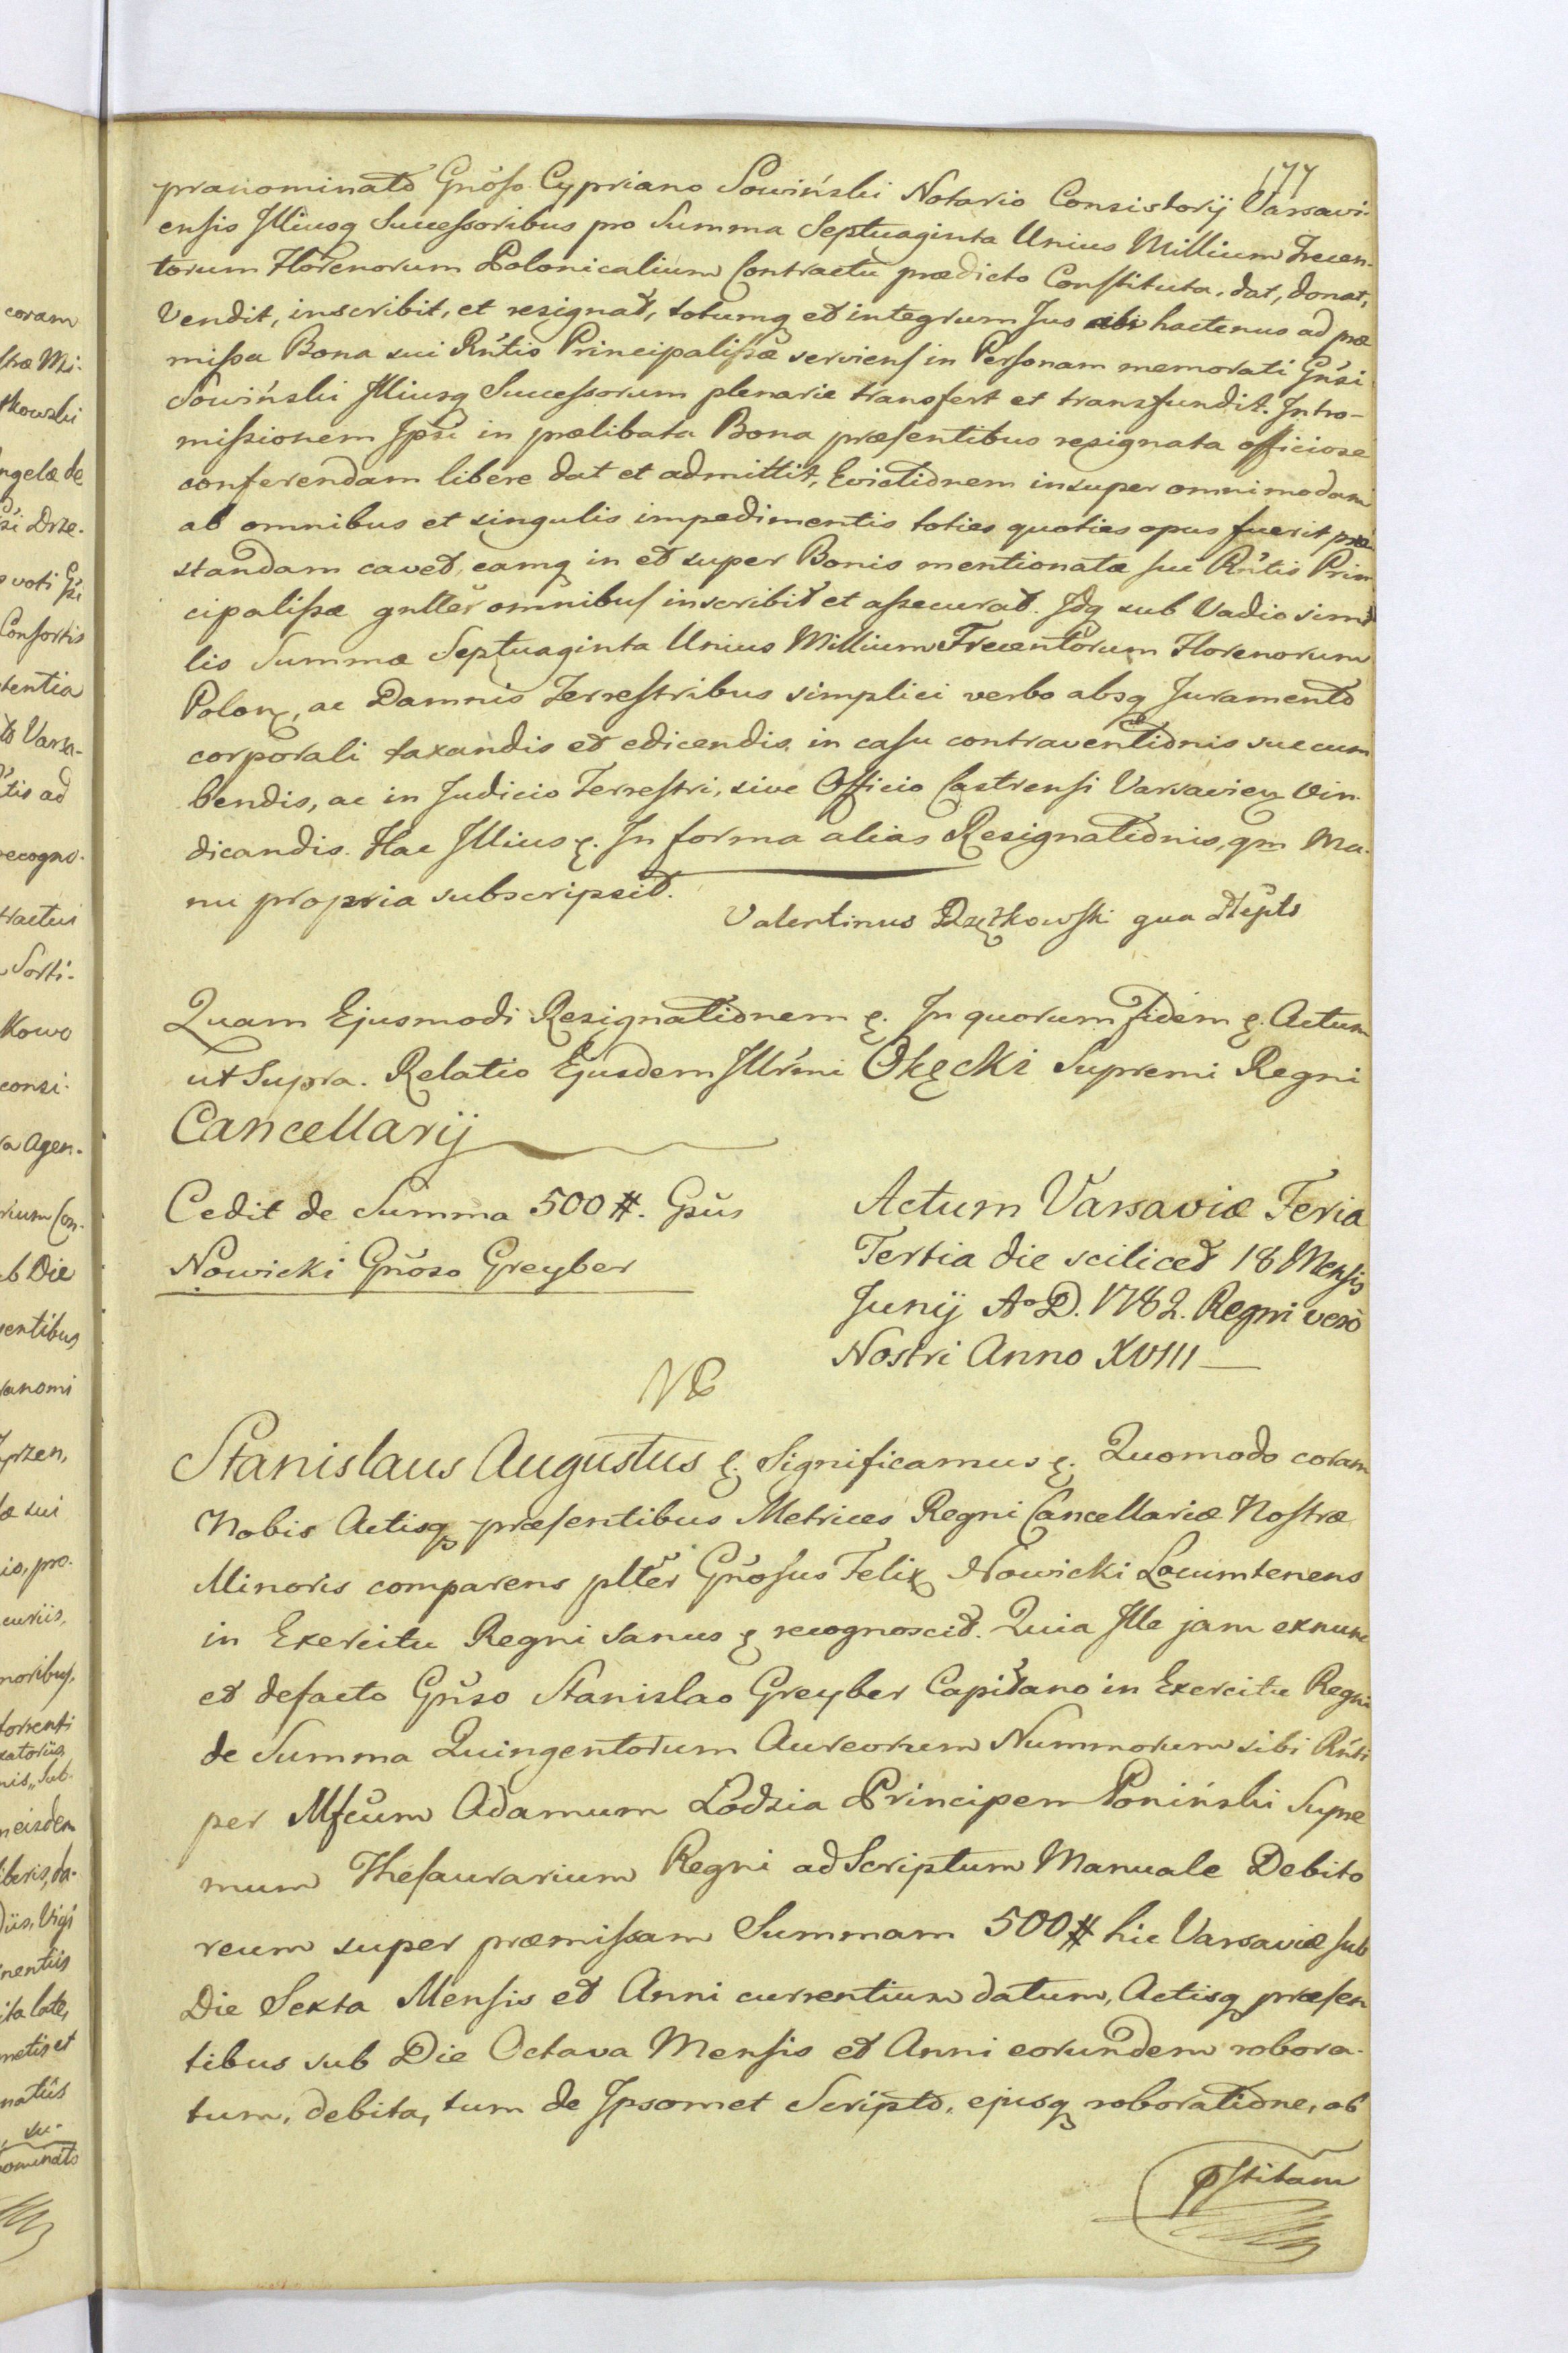 177
prænominato Gnõso Cypriano Sowiński Notario Consistorij Varsavi-
ensis Illiusq Successoribus pro Summa Septuaginta Unius Millium Trecen-
torum Florenorum Polonicalium Contractu prædicto Constituta, dat, donat,
Vendit, inscribit, et resignat, totumq et integrum Jus sibi hactenus ad præ
missa Bona sui Rńtis Principalissæ serviens in Personam memorati Gńsi
Sowiński Illiusq Successorum plenarie transfert et transfundit. Intro-
missionem Ipsi in prælibata Bona præsentibus resignata officiose
conferendam libere dat et admittit, Evictionem insuper omnimodam
ab omnibus et singulis impedimentis toties quoties opus fuerit præ
standam cavet, eamq in et super Bonis mentionatæ suæ Rńtis Prin
cipalissæ gnlter omnibus inscribit et assecurat. Idq sub Vadio simi
lis Summæ Septuaginta Unius Millium Trecentorum Florenorum
Polon, ac Damnis Terrestribus simplici verbo absq Juramento
corporali taxandis et edicendis, in casu contraventionis succum
bendis, ac in Judicio Terrestri, sive Officio Castrensi Varsavien vin
dicandis. Hac Illius &. In forma alias Resignationis, qm Ma-
nu propria subscripsit.
Valentinus Dzętkowski qua Plepts
Quam Ejusmodi Resignationem &. In quorum fidem &. Actum
ut Supra. Relatio Ejusdem Illrmi Okęcki Supremi Regni
Cancellarij
Cedit de Summa 500 #. Gsũs
Nowicki Gnõso Greyber
Actum Varsaviæ Feria
Tertia die scilicet 18 Mensis
Junij A° D. 1782. Regni vero
Nostri Anno XVIII
Stanislaus Augustus &. Significamus &. Quomodo coram
Nobis Actisq præsentibus Metrices Regni Cancellariæ Nostræ
Minoris comparens plter Gnosus Felix Nowicki Locumtenens
in Exercitu Regni sanus & recognoscit. Quia Ille jam exnunc
et defacto Gnso Stanislao Greyber Capitano in Exercitu Regni
de Summa Quingentorum Aureorum Nummorum sibi Rńti
per Mfcum Adamum Lodzia Principem Poniński Supre
mum Thesaurarium Regni ad Scriptum Manuale Debito
reum super præmissam Summam 500 # hic Varsaviæ sub
Die Sexta Mensis et Anni currentium datum, Actisq præsen
tibus sub Die Octava Mensis et Anni eorundem robora-
tum, debita, tum de Ipsomet Scripto, ejusq roboratione, ab